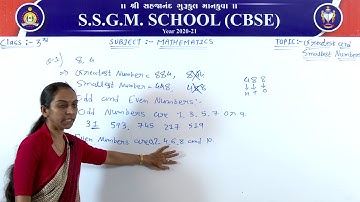 || શ્રી સહજાનંદ ગુરુકુળ માનકુવા ||
S.S.G.M. SCHOOL (CBSE)
Year 2020-21
Class: 3rd SUBJECT - MATHEMATICS TOPIC:- Greatest and Smallest Numbers
8, 4
⇒ Greatest Number = 884,
Smallest Number = 448,
488
H T O
Odd and Even Numbers:-
Odd Numbers are 1, 3, 5, 7 or 9.
31 593, 745 217 519
Even Numbers are 2, 4, 6, 8 and 10.